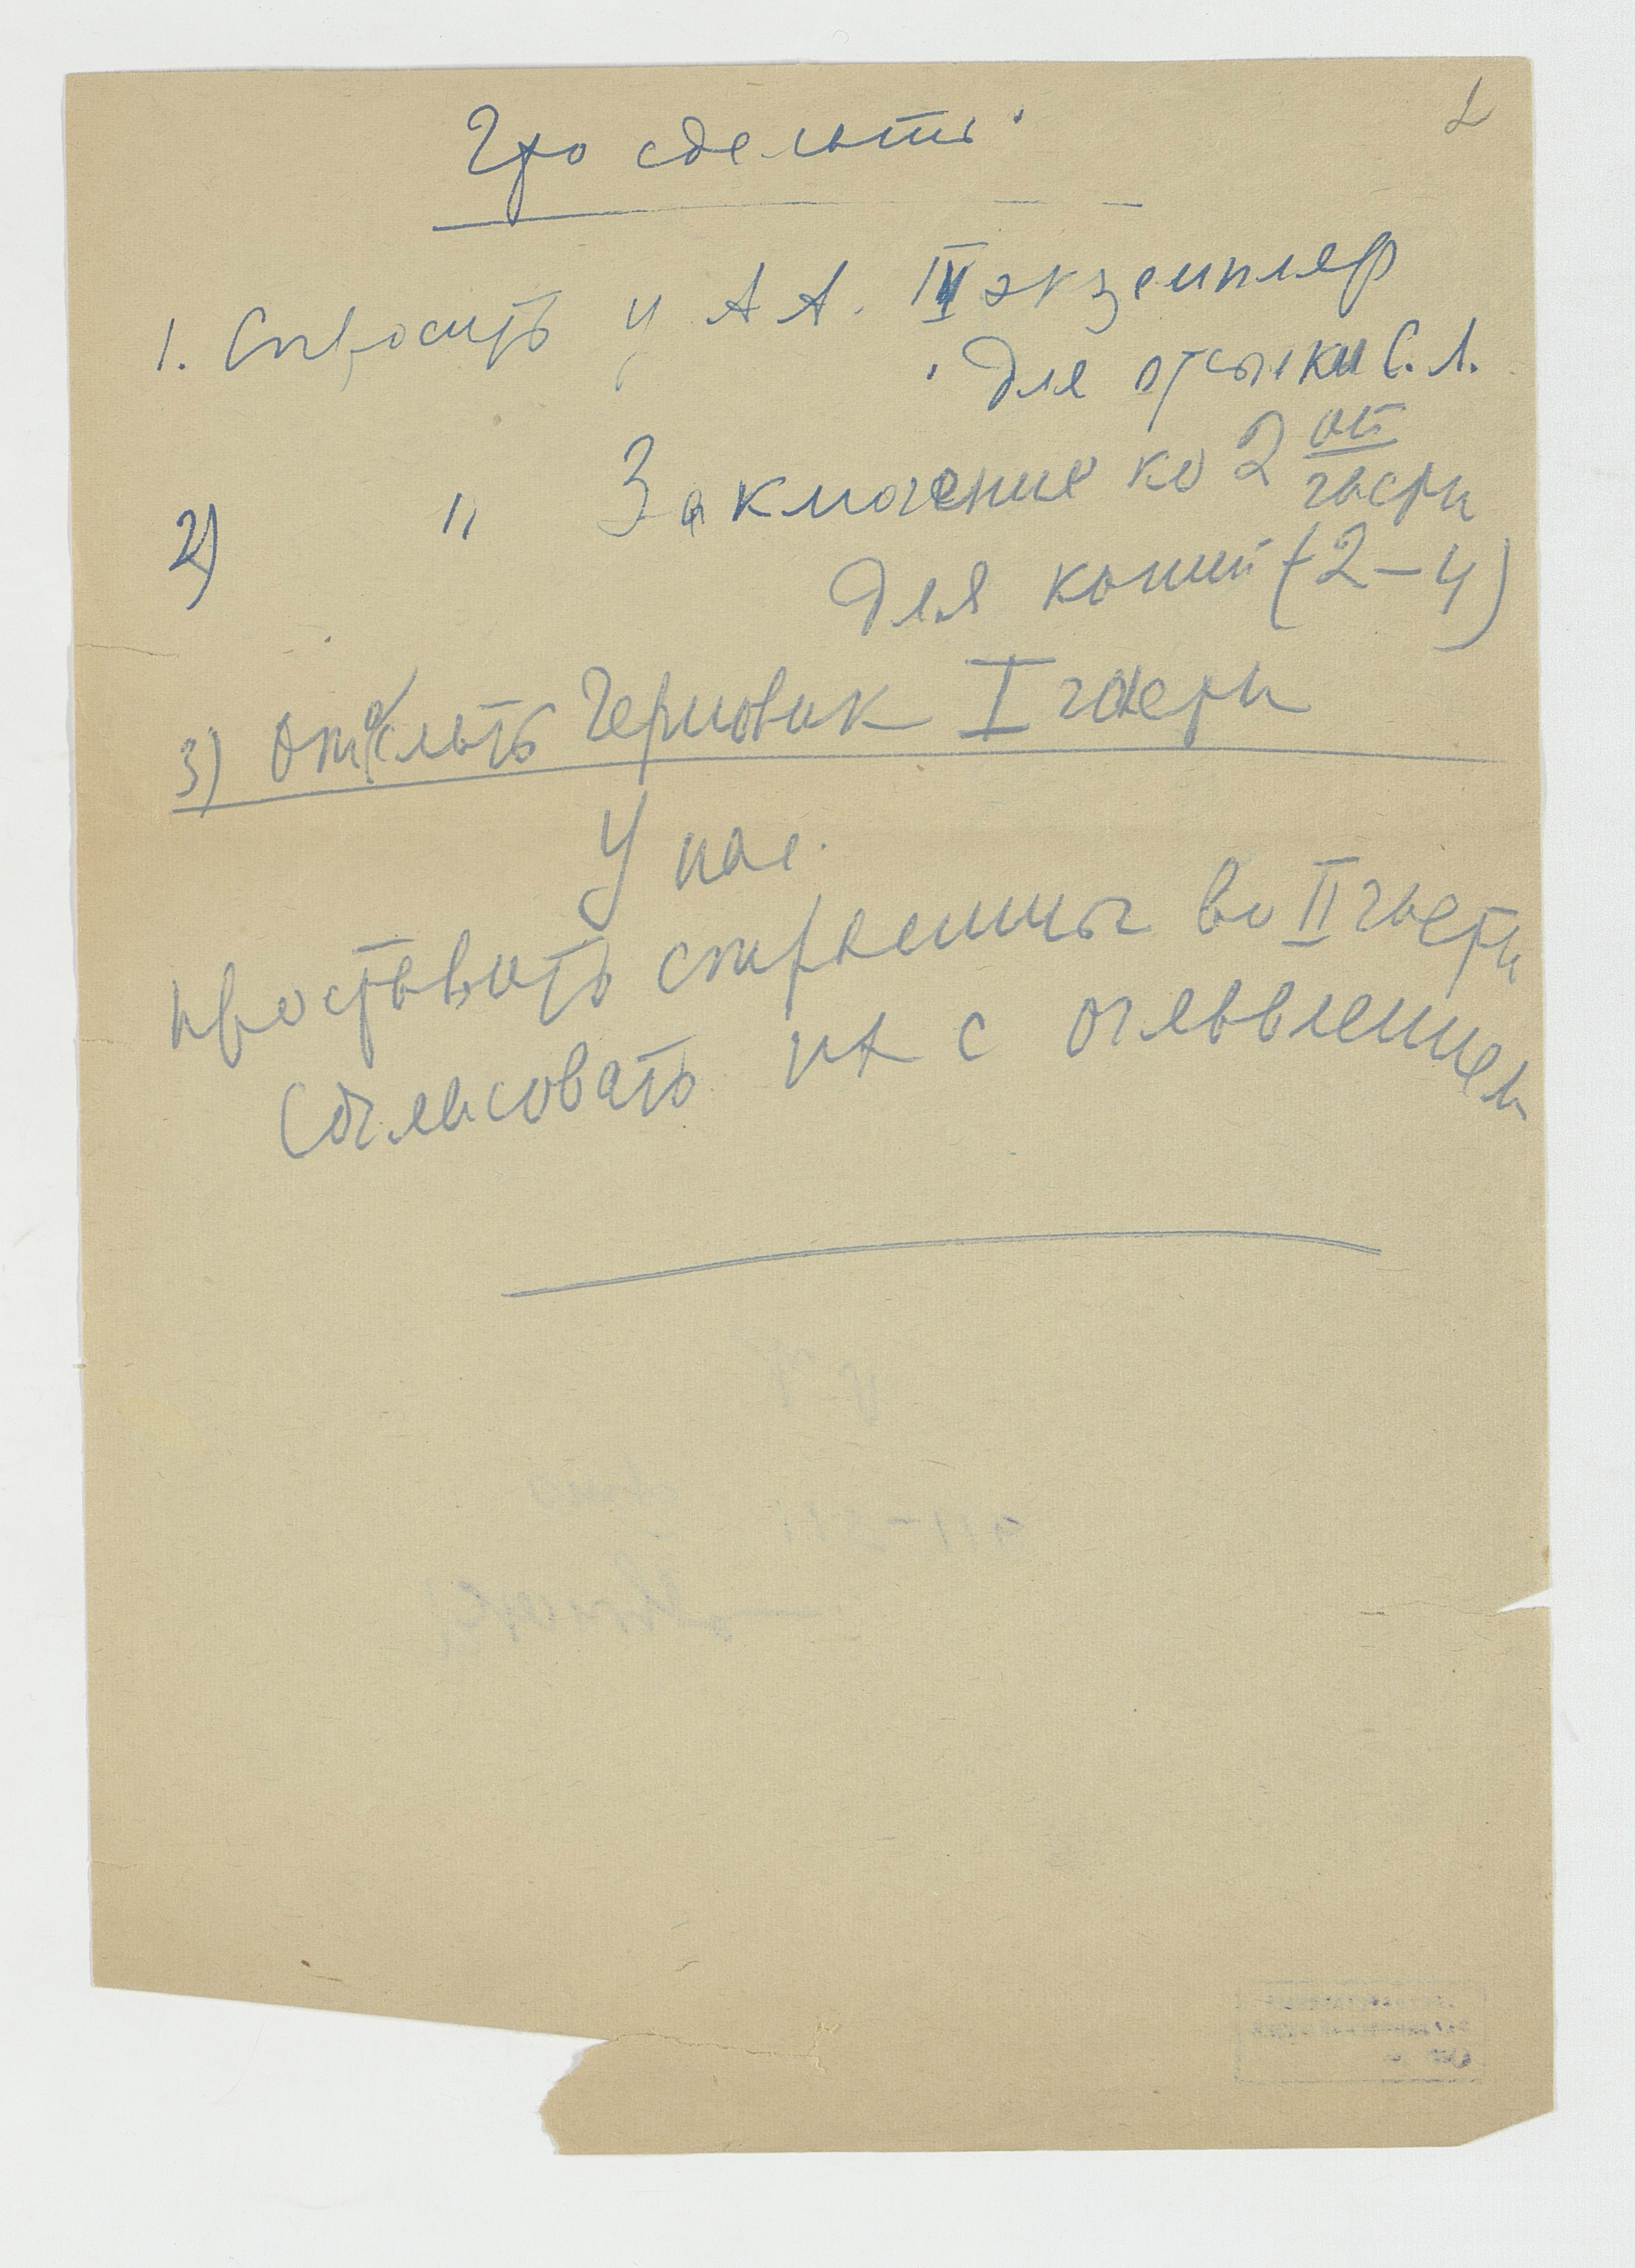 Что сделать.
1. Спросить у А А. IV экземпляр
для отсылки С. Л.
2) " Заключение ко 2 ой
части
для копий (2–4)
3) Отослать Черновик I части
У нас.
проставить страницы во II части
Согласовать их с оглавлением